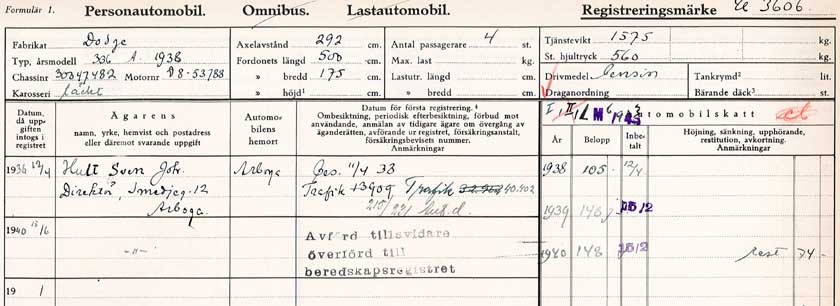 Formulär 1.
Personautomobil. Omnibus. Lastautomobil. Registreringsmärke U 3606.
Fabrikat Dodge
Typ, årsmodell 1938
Chassinr 30047482 Motornr D8-53788
Karosseri täckt
Axelavstånd 292 cm.
Fordonets längd 500 cm.
» bredd 175 cm.
» höjd¹ cm.
Antal passagerare 4 st.
Max. last kg.
Lastutr. längd cm.
» bredd cm.
Tjänstevikt 1575 kg.
St. hjultryck 560 kg.
Drivmedel Bensin
Draganordning
Tankrymd² lit.
Bärande däck³ st.
Datum, då uppgiften intogs i registret
Ägarens
namn, yrke, hemvist och postadress
eller däremot svarande uppgift
Automobilens hemort
Datum för första registrering.⁴
Ombesiktning, periodisk efterbesiktning, förbud mot
användande, anmälan av tidigare ägare om övergång av
äganderätten, avförande ur registret, försäkringsanstalt,
försäkringsbevisets nummer.
Anmärkningar
Automobilskatt
År Belopp Inbetalt
Höjning, sänkning, upphörande,
restitution, avkortning.
Anmärkningar
1936 12/4 Hult Sven Joh. Arboga Bes. 11/4 38
Direktör, Smedjeg. 12
Trafik 40.402
Arboga
1940 15/6 -"-
Avförd tillsvidare
överförd till
beredskapsregistret
19 /
1938 105.- 12/4
1939 148 15/2
1940 148 15/2 rest 74-